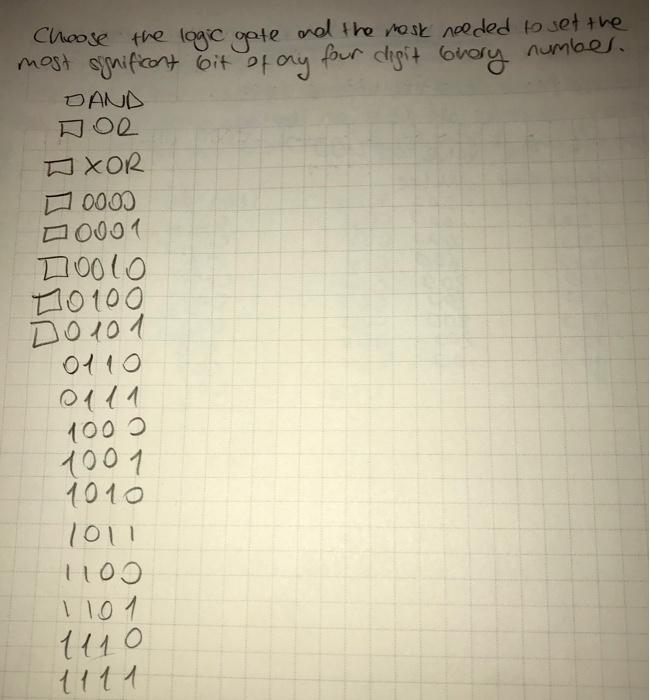 Choose the logic gate and the mask needed to set the
most significant bit of any four digit binary number.
AND
OR
XOR
0000
0001
0010
0100
0101
0110
0111
1000
1001
1010
1011
1100
1101
1110
1111